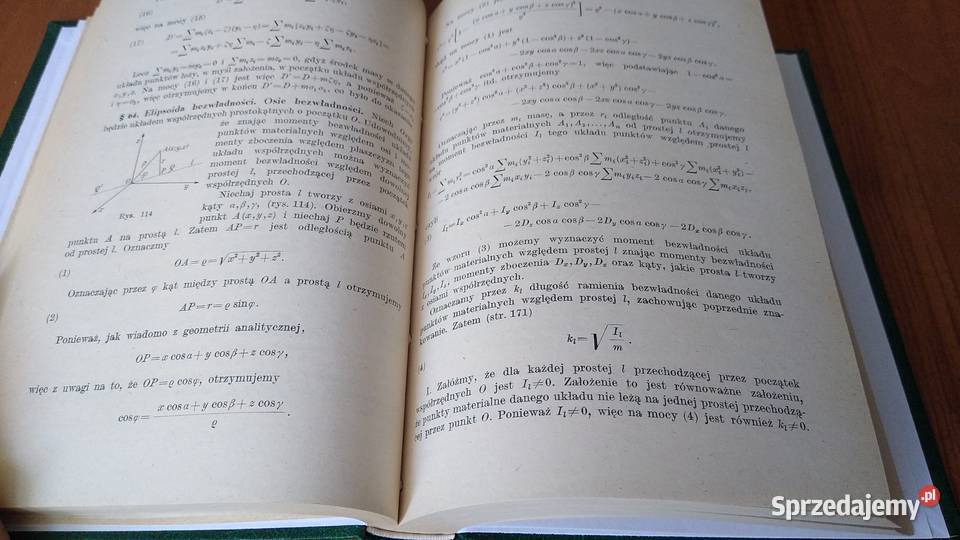 (16)
więc na mocy (18)
(17) D'=∑mᵢ(zᵢ−ζ)(yᵢ−η)=∑mᵢ[zᵢyᵢ+ζη−ζyᵢ−ηzᵢ]=
=∑mᵢzᵢyᵢ+ζη∑mᵢ−ζ∑mᵢyᵢ−η∑mᵢzᵢ.
gdyż środek masy w danym
układu punktów leży, w myśl założenia, w początku układu współrzędnych
x,y,z. Na mocy (16) i (17) jest więc D'=D+mζη, a ponieważ
więc otrzymujemy w końcu co było do okazania.
§ 64. Elipsoida bezwładności. Osie bezwładności. Niech Oxyz
będzie układem współrzędnych prostokątnych o początku O. Udowodnimy,
że znając momenty bezwładności układu
punktów materialnych względem osi i mo-
menty zboczenia względem płaszczyzn tego
układu współrzędnych można wyznaczyć
moment bezwładności względem dowolnej
prostej l, przechodzącej przez początek
współrzędnych O.
Niechaj prosta l tworzy z osiami x,y,z
kąty α,β,γ, (rys. 114). Obierzmy dowolny
punkt A(x,y,z) i niechaj P będzie rzutem
Rys. 114
punktu A na prostą l. Zatem AP=r jest odległością punktu A
od prostej l. Oznaczmy
(1) OA=ϱ=√x²+y²+z².
Oznaczając przez φ kąt między prostą OA a prostą l otrzymujemy
(2) AP=r=ϱ sinφ.
Ponieważ, jak wiadomo z geometrii analitycznej,
OP=x cosα+y cosβ+z cosγ,
więc z uwagi na to, że OP=ϱ cosφ, otrzymujemy
cosφ= x cosα+y cosβ+z cosγ / ϱ .
Na mocy (2)
(x cosα+y cosβ+z cosγ)² / ϱ² ]=ϱ²−(x cosα+y cosβ+z cosγ)²,
na mocy (1) jest
r²=x²(1−cos²α)+y²(1−cos²β)+z²(1−cos²γ)−
−2xy cosα cosβ−2xz cosα cosγ−2yz cosβ cosγ.
Ponieważ cos²α+cos²β+cos²γ=1, więc podstawiając 1−cos²α=
itd. otrzymujemy
r²=(y²+z²) cos²α+(x²+z²) cos²β+(x²+y²) cos²γ−
−2xy cosα cosβ−2xz cosα cosγ−2yz cosβ cosγ.
Oznaczając przez mᵢ masę, a przez rᵢ odległość punktu Aᵢ danego
układu punktów materialnych A₁,A₂,...,Aₙ od prostej l otrzymujemy
moment bezwładności Iₗ tego układu punktów względem prostej l
Iₗ=∑mᵢrᵢ²=cos²α∑mᵢ(yᵢ²+zᵢ²)+cos²β∑mᵢ(xᵢ²+zᵢ²)+cos²γ∑mᵢ(xᵢ²+yᵢ²)−
−2 cosα cosβ∑mᵢxᵢyᵢ−2 cosβ cosγ∑mᵢyᵢzᵢ−2 cosα cosγ∑mᵢxᵢzᵢ,
czyli
(3) Iₗ=Iₓ cos²α+I_y cos²β+I_z cos²γ−
−2Dₓ cosβ cosγ−2D_y cosα cosγ−2D_z cosα cosβ.
Ze wzoru (3) możemy wyznaczyć moment bezwładności układu
punktów materialnych względem prostej l znając momenty bezwładności
Iₓ,I_y,I_z, momenty zboczenia Dₓ,D_y,D_z oraz kąty, jakie prosta l tworzy
z osiami współrzędnych.
Oznaczamy przez kₗ długość ramienia bezwładności danego układu
punktów materialnych względem prostej l, zachowując poprzednie zna-
kowanie. Zatem (str. 171)
(4) kₗ=√Iₗ/m .
I. Załóżmy, że dla każdej prostej l przechodzącej przez początek
współrzędnych O jest Iₗ≠0. Założenie to jest równoważne założeniu,
że punkty materialne danego układu nie leżą na jednej prostej przechodzą-
cej przez punkt O. Ponieważ Iₗ≠0, więc na mocy (4) jest również kₗ≠0.
Sprzedajemy.pl